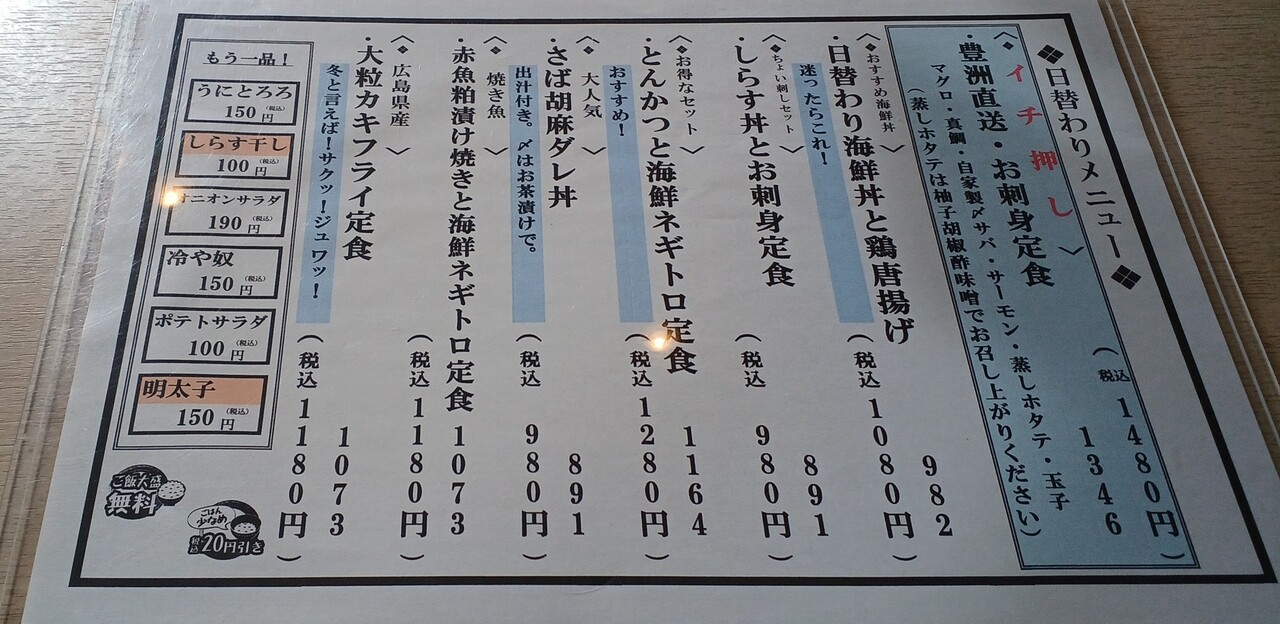 ❖日替わりメニュー❖
〈◆イチ押し〉
・豊洲直送・お刺身定食
1346
(税込1480円)
マグロ・真鯛・自家製〆サバ・サーモン・蒸しホタテ・玉子
(蒸しホタテは柚子胡椒酢味噌でお召し上がりください)
〈◆おすすめ海鮮丼〉
・日替わり海鮮丼と鶏唐揚げ
982
迷ったらこれ!
(税込1080円)
〈◆ちょい刺しセット〉
・しらす丼とお刺身定食
891
(税込980円)
〈◆お得なセット〉
・とんかつと海鮮ネギトロ定食
1164
おすすめ!
(税込1280円)
〈◆大人気〉
・さば胡麻ダレ丼
891
出汁付き。〆はお茶漬けで。
(税込980円)
〈◆焼き魚〉
・赤魚粕漬け焼きと海鮮ネギトロ定食
1073
(税込1180円)
〈◆広島県産〉
・大粒カキフライ定食
1073
冬と言えば!サクッ!ジュワッ!
(税込1180円)
もう一品!
うにとろろ
150円(税込)
しらす干し
100円(税込)
オニオンサラダ
190円(税込)
冷や奴
150円(税込)
ポテトサラダ
100円(税込)
明太子
150円(税込)
ご飯大盛
無料
ごはん
少なめ
税込20円引き